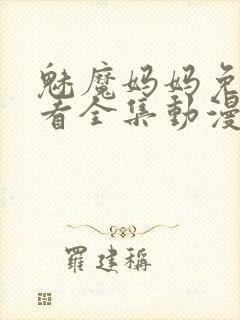 魅魔妈妈免
看全集動漫
羅建稱